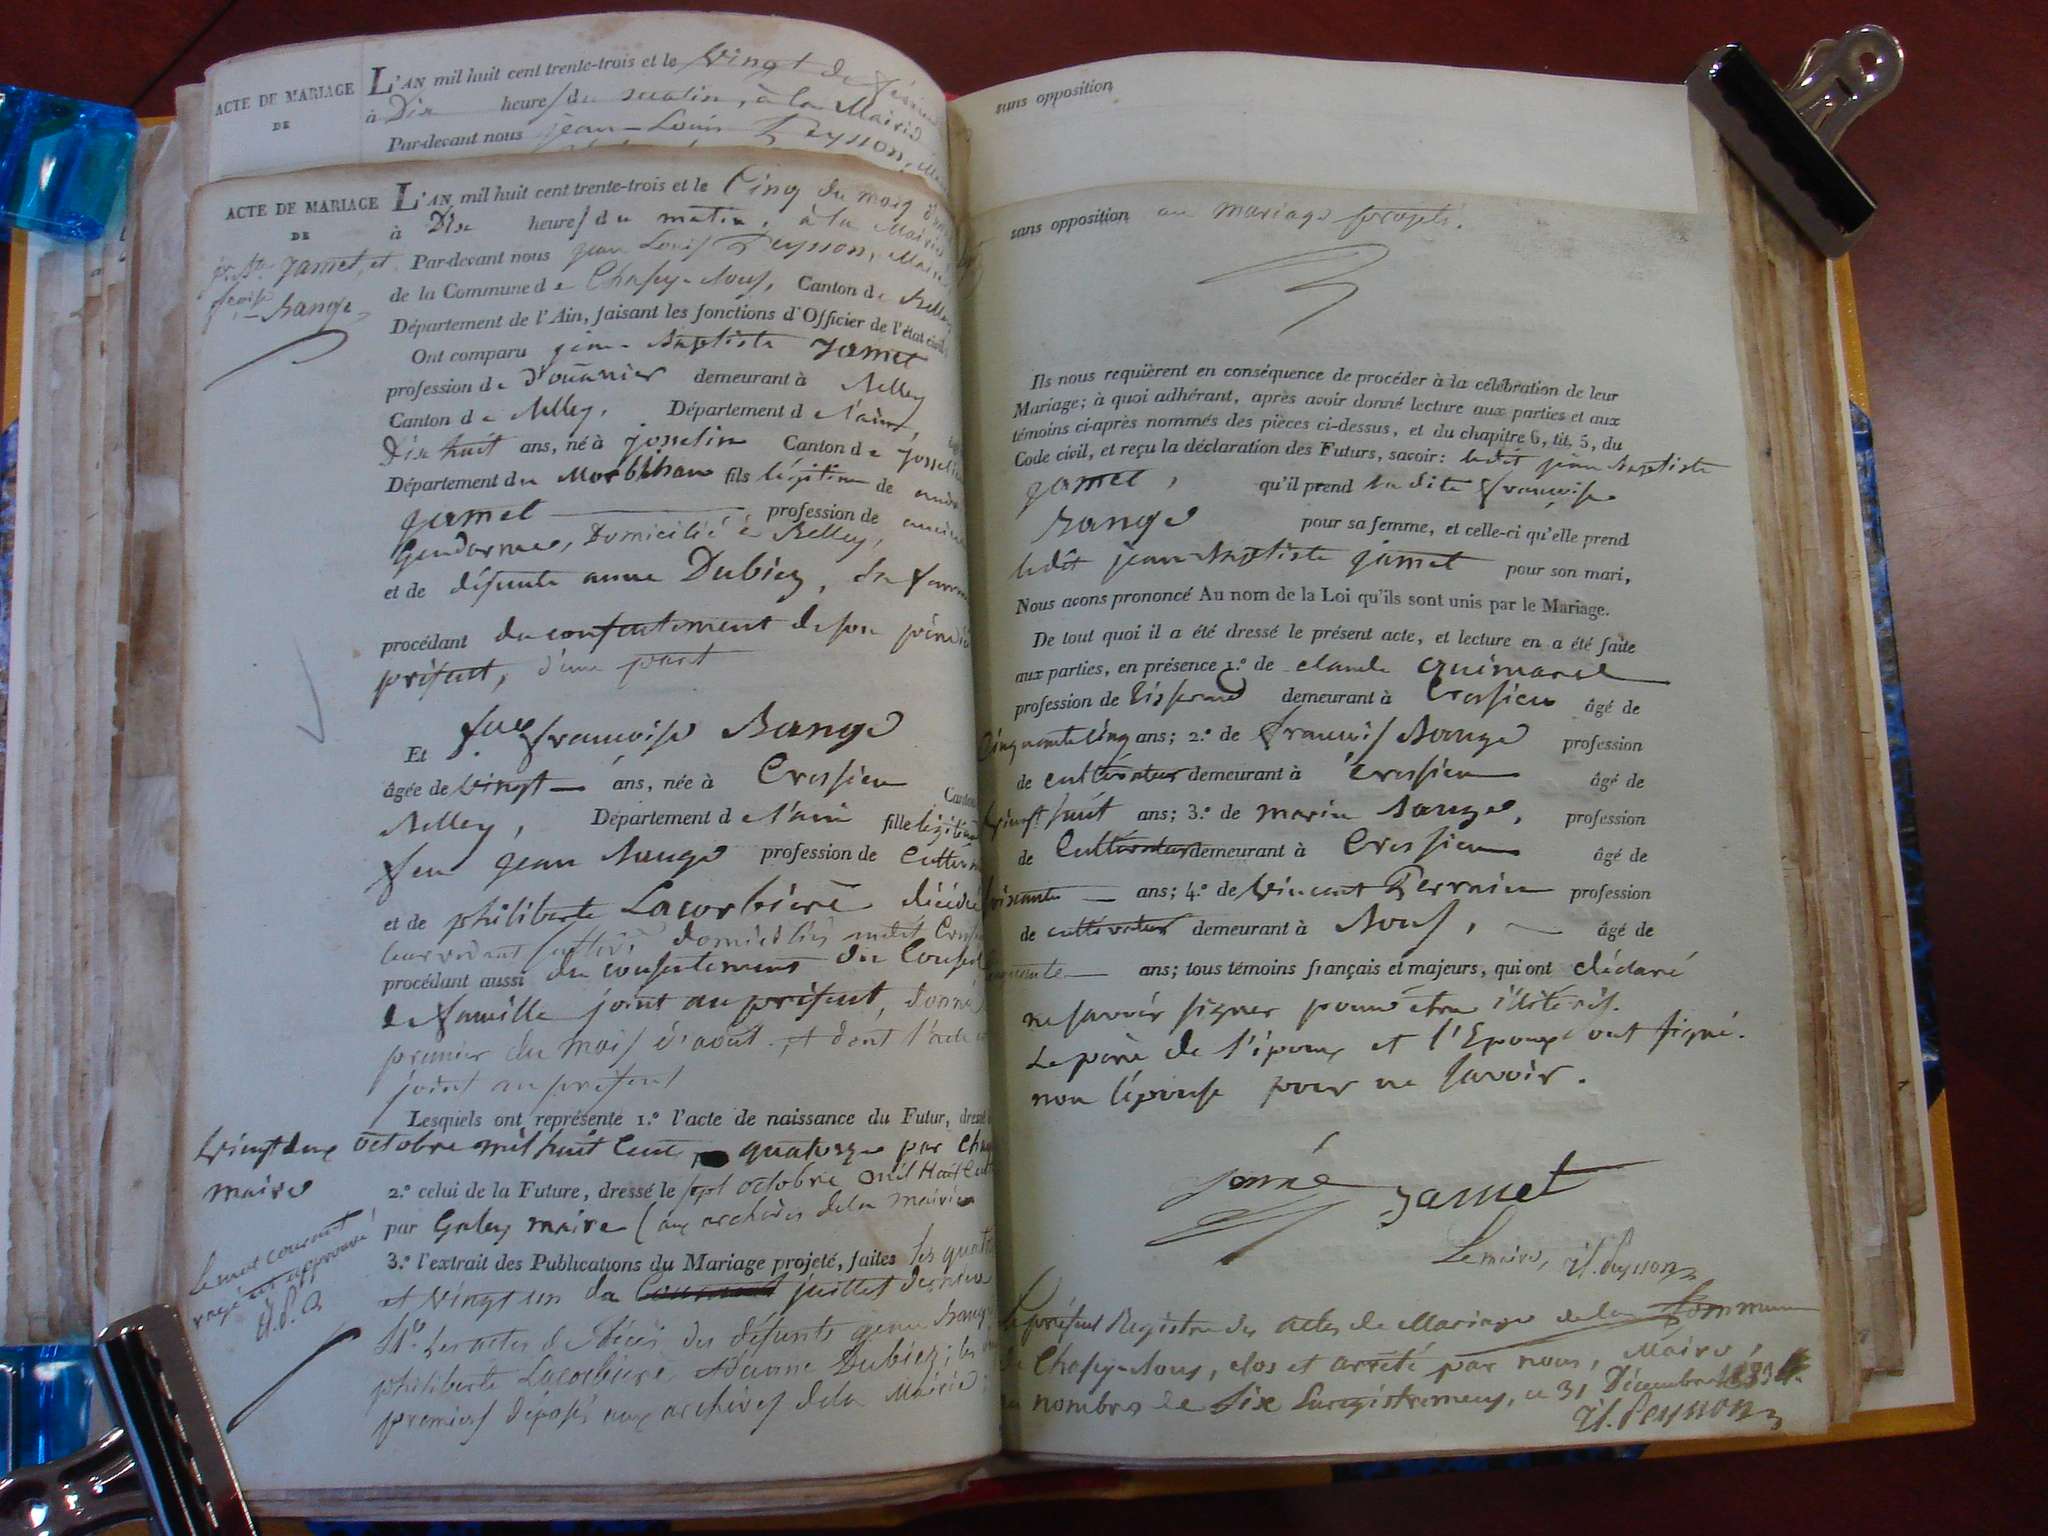 ACTE DE MARIAGE
DE
L'AN mil huit cent trente-trois et le Vingt de
à Dix heures du matin, à la Mairie
Par-devant nous jean-Louis Peysson,
ACTE DE MARIAGE
DE
jn. Bte. Jamet, et
Bange
L'AN mil huit cent trente-trois et le Cinq du mois
à Dix heures du matin, à la Mairie
Par-devant nous jean Louis Peysson, Maire
de la Commune de Chasey-Sous, Canton de Belley
Département de l'Ain, faisant les fonctions d'Officier de l'état civil
Ont comparu jean-Baptiste Jamet
profession de demeurant à Belley
Canton de Belley, Département de l'ain,
Dix huit ans, né à josselin Canton de josselin
Département du Morbihan fils légitime de
jamet profession de
Gendarme, Domicilié à Belley,
et de défunte anne Dubiez,
procédant du consentement de son père
présent, d'une part
Et françoise Bange
âgée de vingt ans, née à Cressieu Canton
Belley, Département de l'ain fille légitime
feu jean Bange profession de
et de philiberte Lacorbière
leur vivant domiciliés audit
procédant aussi du consentement du Conseil
de famille joint au présent, donné
premier du mois d'août et dont l'acte
joint au présent
Lesquels ont représenté 1.º l'acte de naissance du Futur, dressé
Vingt deux octobre mil huit cent quatorze par
maire
2.º celui de la Future, dressé le sept octobre mil Huit Cent
par maire (aux archives de la mairie
3.º l'extrait des Publications du Mariage projeté, faites les
et Vingt un du Courant juillet dernier
Le mot courant
rayé est approuvé
4.º Les actes de Décès des défunts jean Bange
philiberte Lacorbière, et anne Dubiez; les
premiers déposés aux archives de la Mairie;
sans opposition
sans opposition au mariage projeté.
Ils nous requièrent en conséquence de procéder à la célébration de leur
Mariage; à quoi adhérant, après avoir donné lecture aux parties et aux
témoins ci-après nommés des pièces ci-dessus, et du chapitre 6, tit, 5, du
Code civil, et reçu la déclaration des Futurs, savoir: ledit jean Baptiste
jamet, qu'il prend la dite françoise
Bange pour sa femme, et celle-ci qu'elle prend
ledit jean-Baptiste jamet pour son mari,
Nous avons prononcé Au nom de la Loi qu'ils sont unis par le Mariage.
De tout quoi il a été dressé le présent acte, et lecture en a été faite
aux parties, en présence 1.º de claude
profession de tisserand demeurant à Cressieu âgé de
Cinquante cinq ans; 2.º de françois Bange profession
de cultivateur demeurant à Cressieu âgé de
Vingt huit ans; 3.º de marin Bange, profession
de Cultivateur demeurant à Cressieu âgé de
soixante ans; 4.º de Vincent Perrain profession
de cultivateur demeurant à Sous, âgé de
ans; tous témoins français et majeurs, qui ont déclaré
ne savoir signer pour être illitérés.
Le père de l'époux et l'Epoux ont signé.
non l'épouse pour ne savoir.
Jamet
Le maire, Peysson
Le présent Registre des actes de Mariage de la Commune
de Chasey-Sous, clos et arrêté par nous, Maire,
au nombre de Six Enregistremens, ce 31 Décembre
Peysson